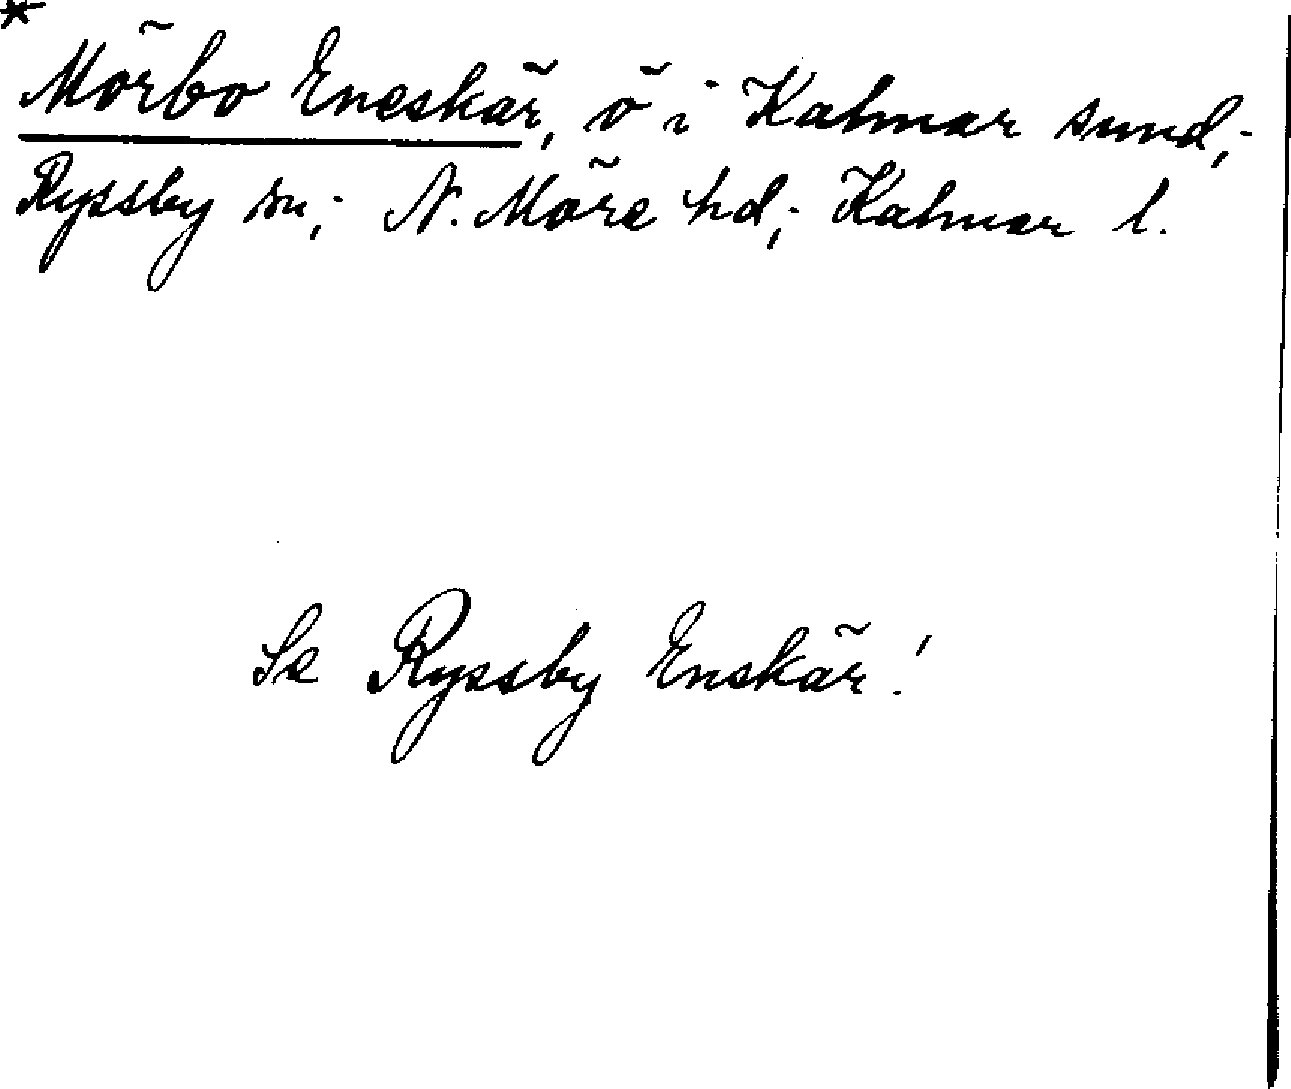 *
Mörbo Eneskär, ö i Kalmar sund;
Ryssby sn; N. Möre hd; Kalmar l.
Se Ryssby Enskär!